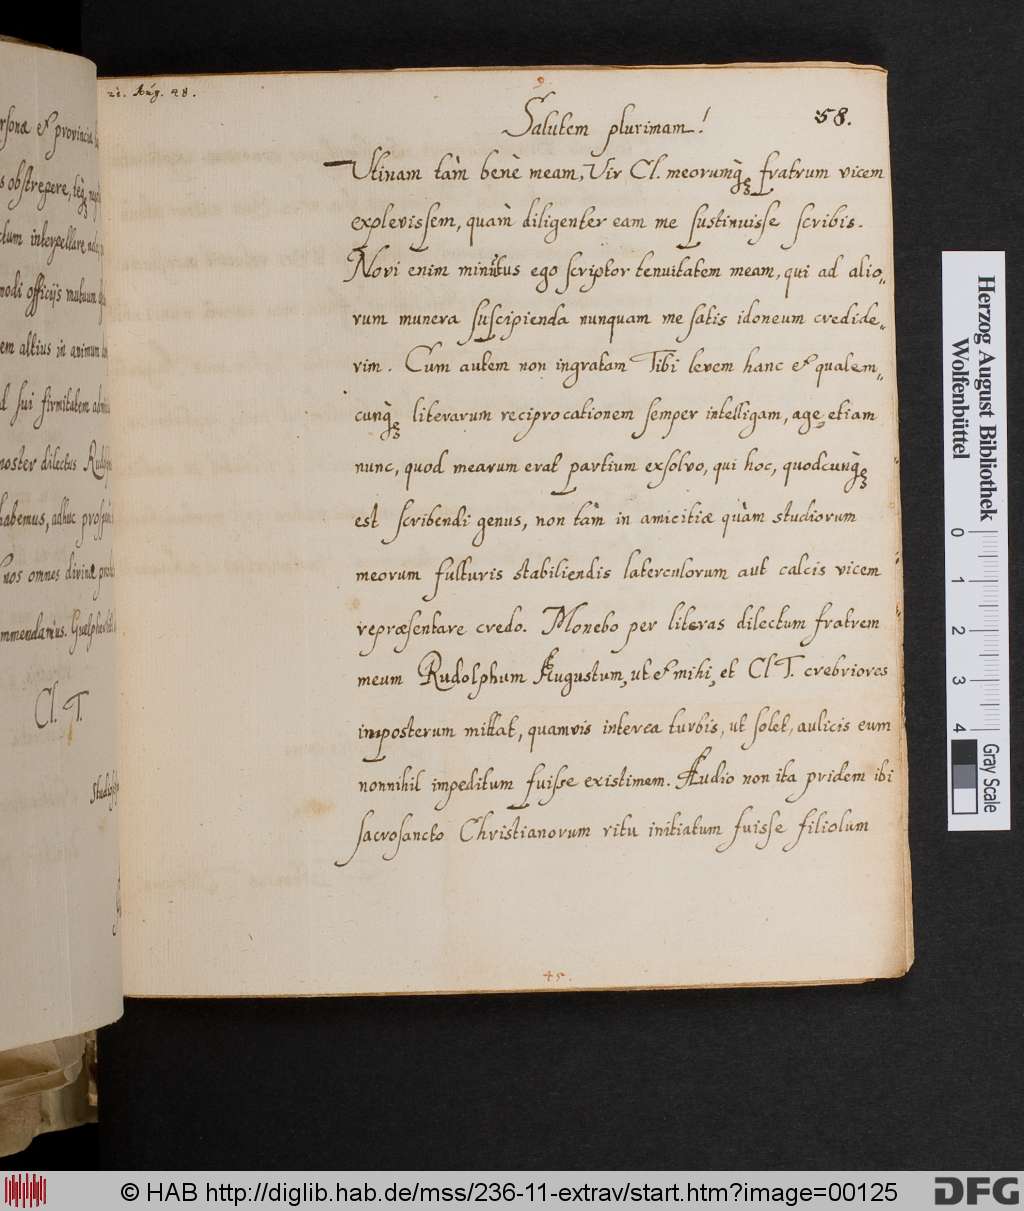 rsona et provincia
s obstrepere, teq̃
ctum interpellare,
modi officijs mutuum
em altius in animum
d sui firmitatem
noster dilectus Rudol
habemus, adhuc prosp
nos omnes divinæ
mmendamus.
Cl. T.
Studios
21. Aug. 48.
9.
58.
Salutem plurimam!
Utinam tàm benè meam, Vir Cl. meorumq̃ fratrum vicem
explevissem, quàm diligenter eam me sustinuisse scribis.
Novi enim minutus ego scriptor tenuitatem meam, qui ad alio„
rum munera suscipienda nunquam me satis idoneum credide„
rim. Cum autem non ingratam Tibi levem hanc et qualem„
cunq̃ literarum reciprocationem semper intelligam, age, etiam
nunc, quod mearum erat partium exsolvo, qui hoc, quodcunq̃
est scribendi genus, non tàm in amicitiæ quàm studiorum
meorum fulturis stabiliendis laterculorum aut calcis vicem
repræsentare credo. Monebo per literas dilectum fratrem
meum Rudolphum Augustum, ut et mihi, et Cl. T. crebriores
imposterum mittat, quamvis interea turbis, ut solet, aulicis eum
nonnihil impeditum fuisse existimem. Audio non ita pridem ibi
sacrosancto Christianorum ritu initiatum fuisse filiolum
45.
Herzog August Bibliothek
Wolfenbüttel
0 1 2 3 4
Gray Scale
© HAB http://diglib.hab.de/mss/236-11-extrav/start.htm?image=00125
DFG